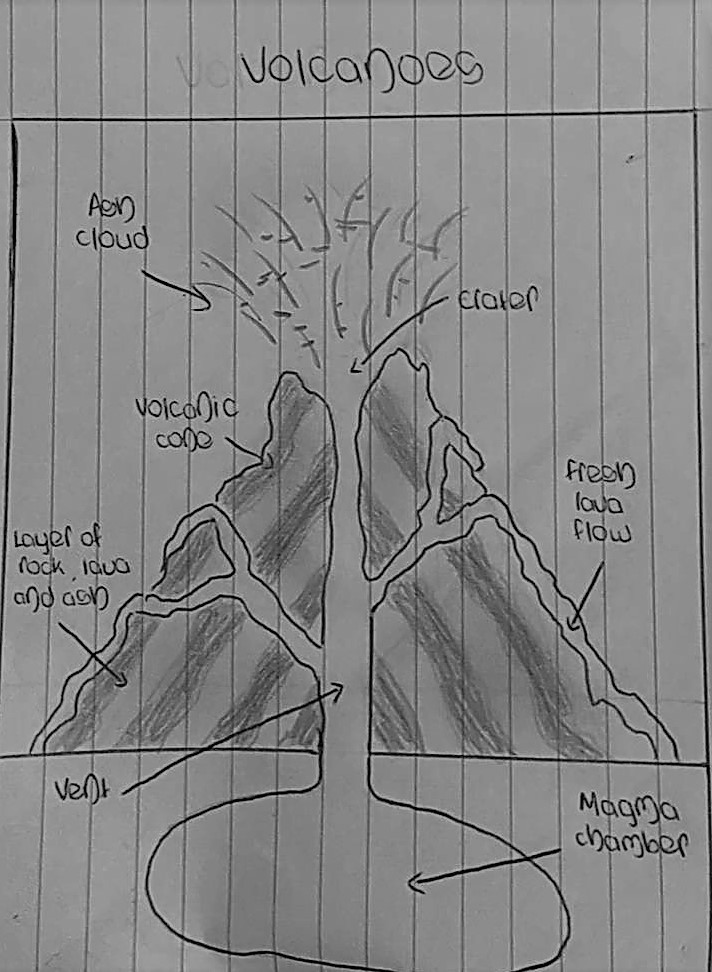 Volcanoes
Ash
cloud
crater
Volcanic
cone
fresh
lava
flow
Layer of
rock, lava
and ash
Vent
Magma
chamber